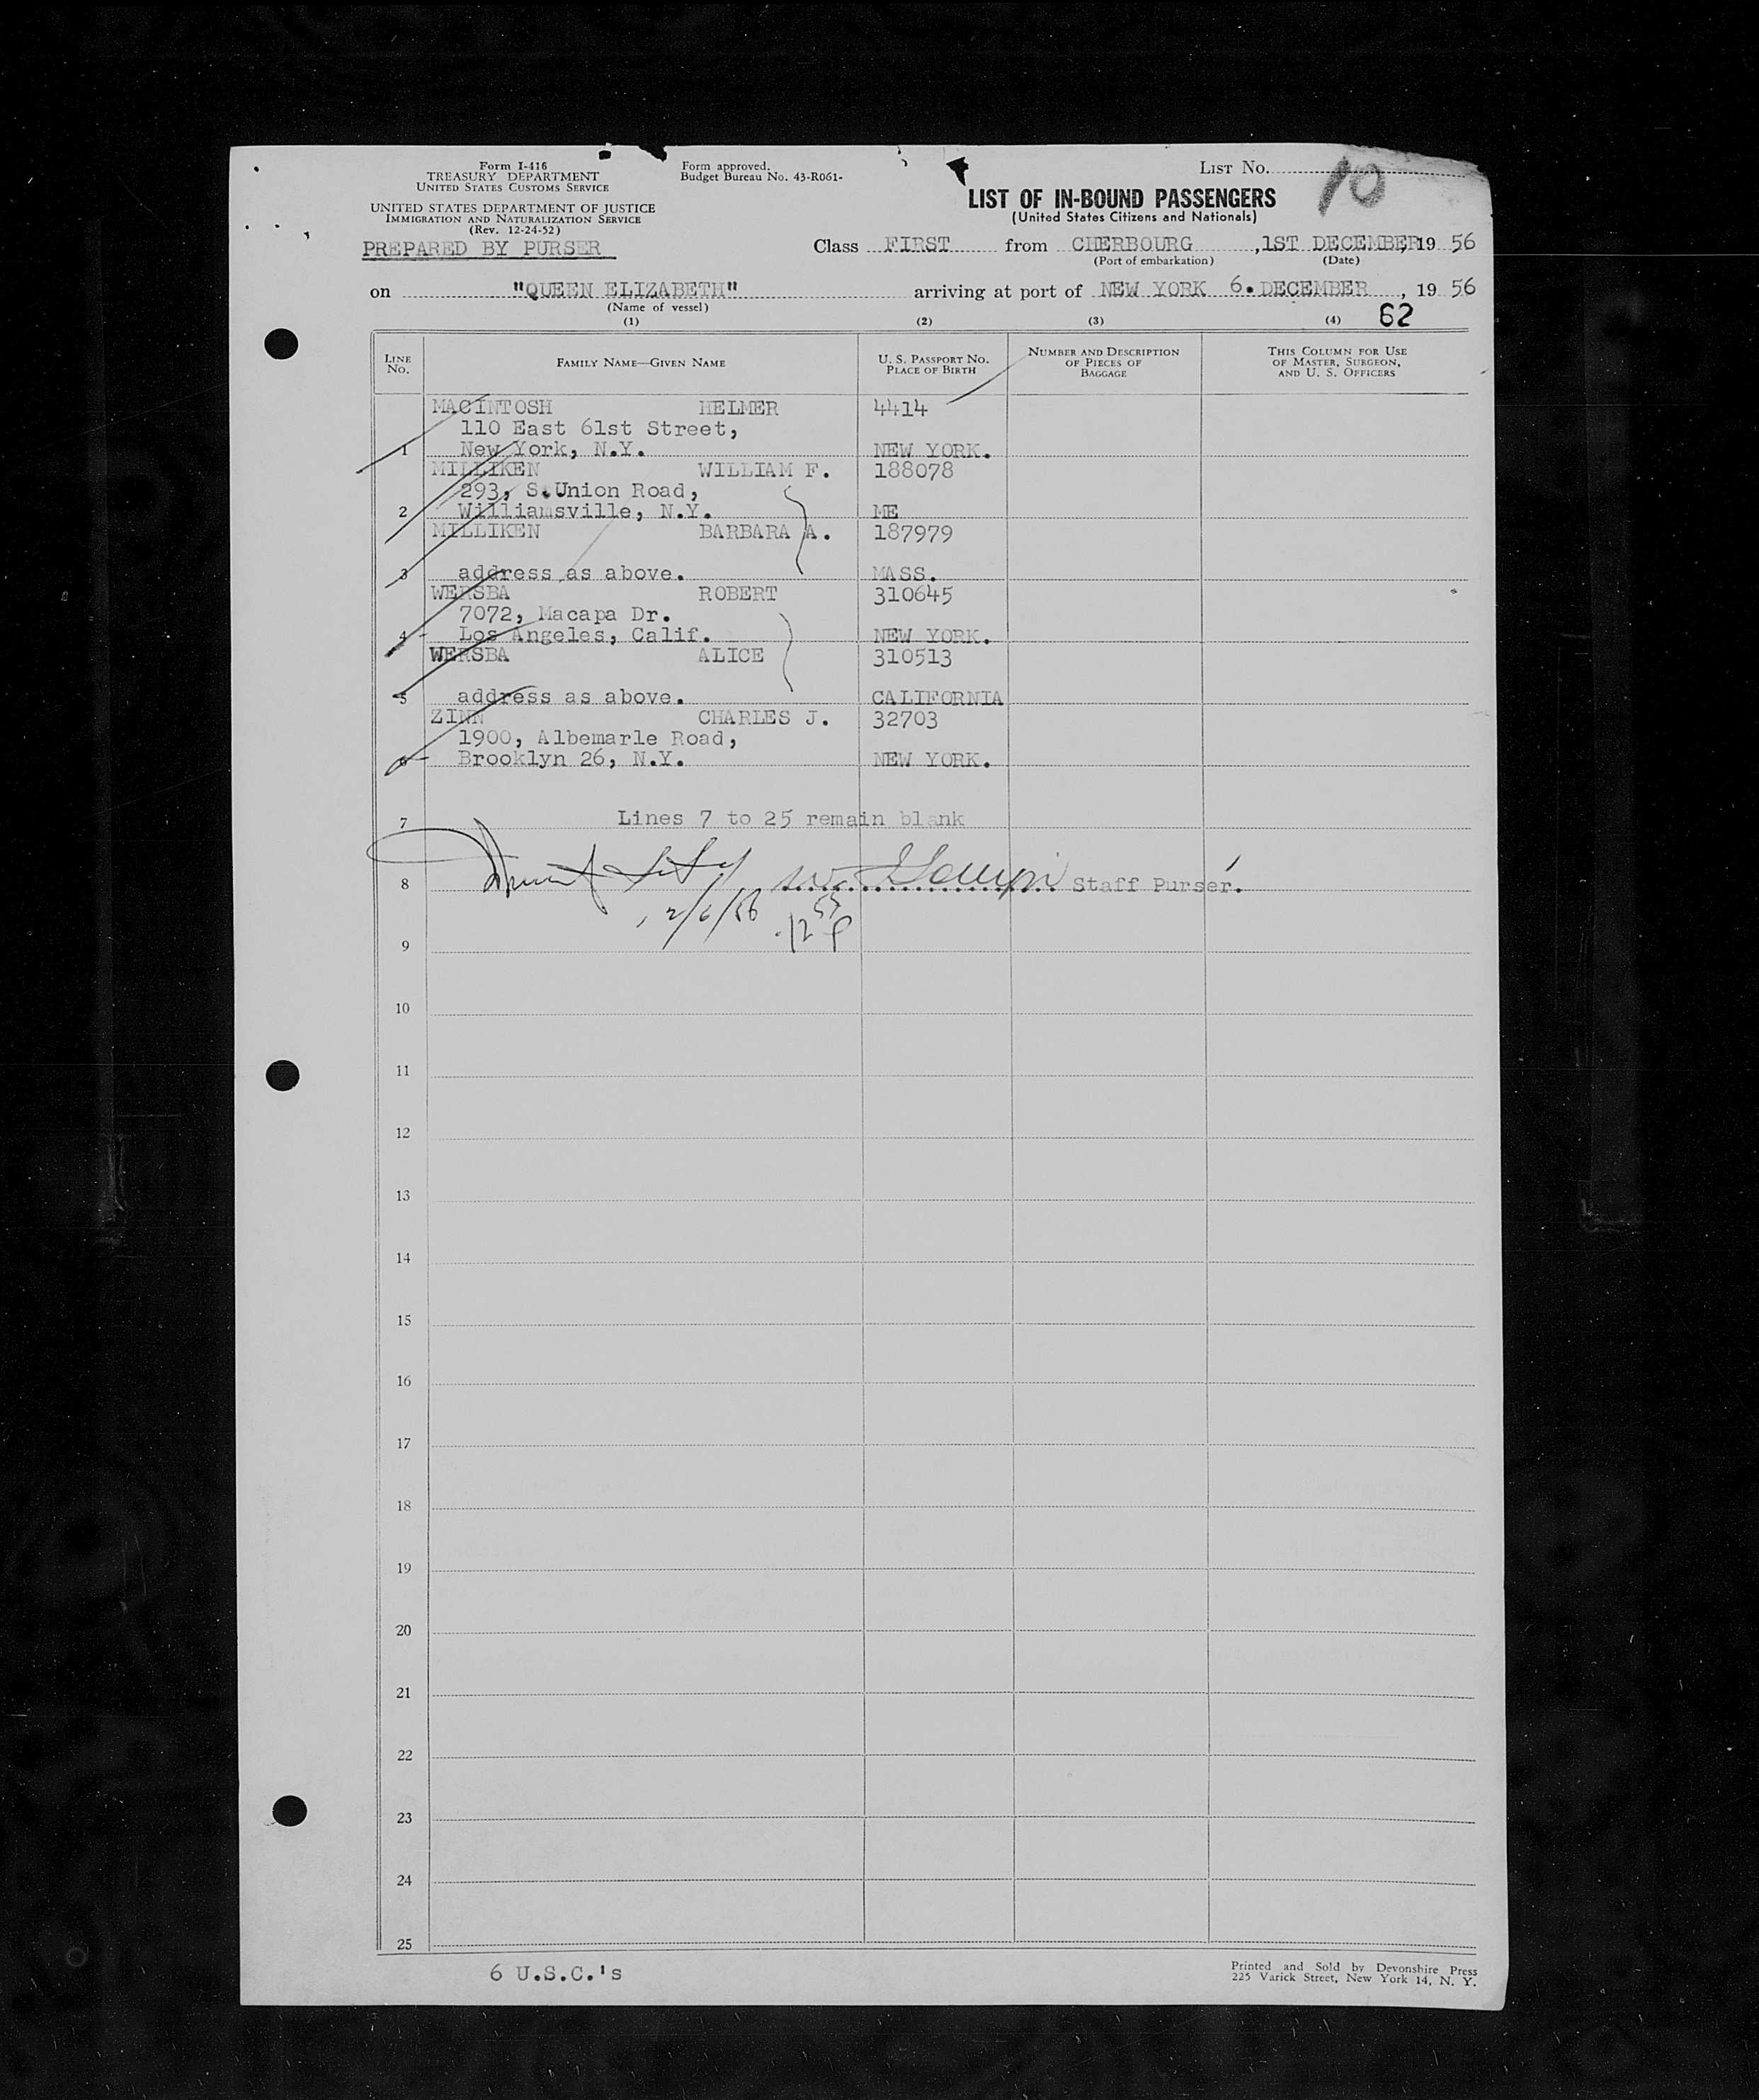 Form I-416
TREASURY DEPARTMENT
UNITED STATES CUSTOMS SERVICE
UNITED STATES DEPARTMENT OF JUSTICE
IMMIGRATION AND NATURALIZATION SERVICE
(Rev. 12-24-52)
PREPARED BY PURSER
Form approved.
Budget Bureau No. 43-R061-
LIST NO. 10
LIST OF IN-BOUND PASSENGERS
(United States Citizens and Nationals)
Class FIRST from CHERBOURG ,1ST DECEMBER, 19 56
(Port of embarkation) (Date)
on "QUEEN ELIZABETH" arriving at port of NEW YORK 6. DECEMBER , 19 56
(Name of vessel)
(1) (2) (3) (4) 62
LINE NO. FAMILY NAME—GIVEN NAME U. S. PASSPORT NO. PLACE OF BIRTH NUMBER AND DESCRIPTION OF PIECES OF BAGGAGE THIS COLUMN FOR USE OF MASTER, SURGEON, AND U. S. OFFICERS
MACINTOSH HELMER 4414
110 East 61st Street,
1 New York, N.Y. NEW YORK.
MILLIKEN WILLIAM F. 188078
293, S.Union Road,
2 Williamsville, N.Y. ME
MILLIKEN BARBARA A. 187979
3 address as above. MASS.
WERSBA ROBERT 310645
7072, Macapa Dr.
4 Los Angeles, Calif. NEW YORK.
WERSBA ALICE 310513
5 address as above. CALIFORNIA
ZINN CHARLES J. 32703
1900, Albemarle Road,
6 Brooklyn 26, N.Y. NEW YORK.
7 Lines 7 to 25 remain blank
8 Staff Purser.
12/6/56 12 55 P
9
10
11
12
13
14
15
16
17
18
19
20
21
22
23
24
25
6 U.S.C.'s
Printed and Sold by Devonshire Press
225 Varick Street, New York 14, N. Y.